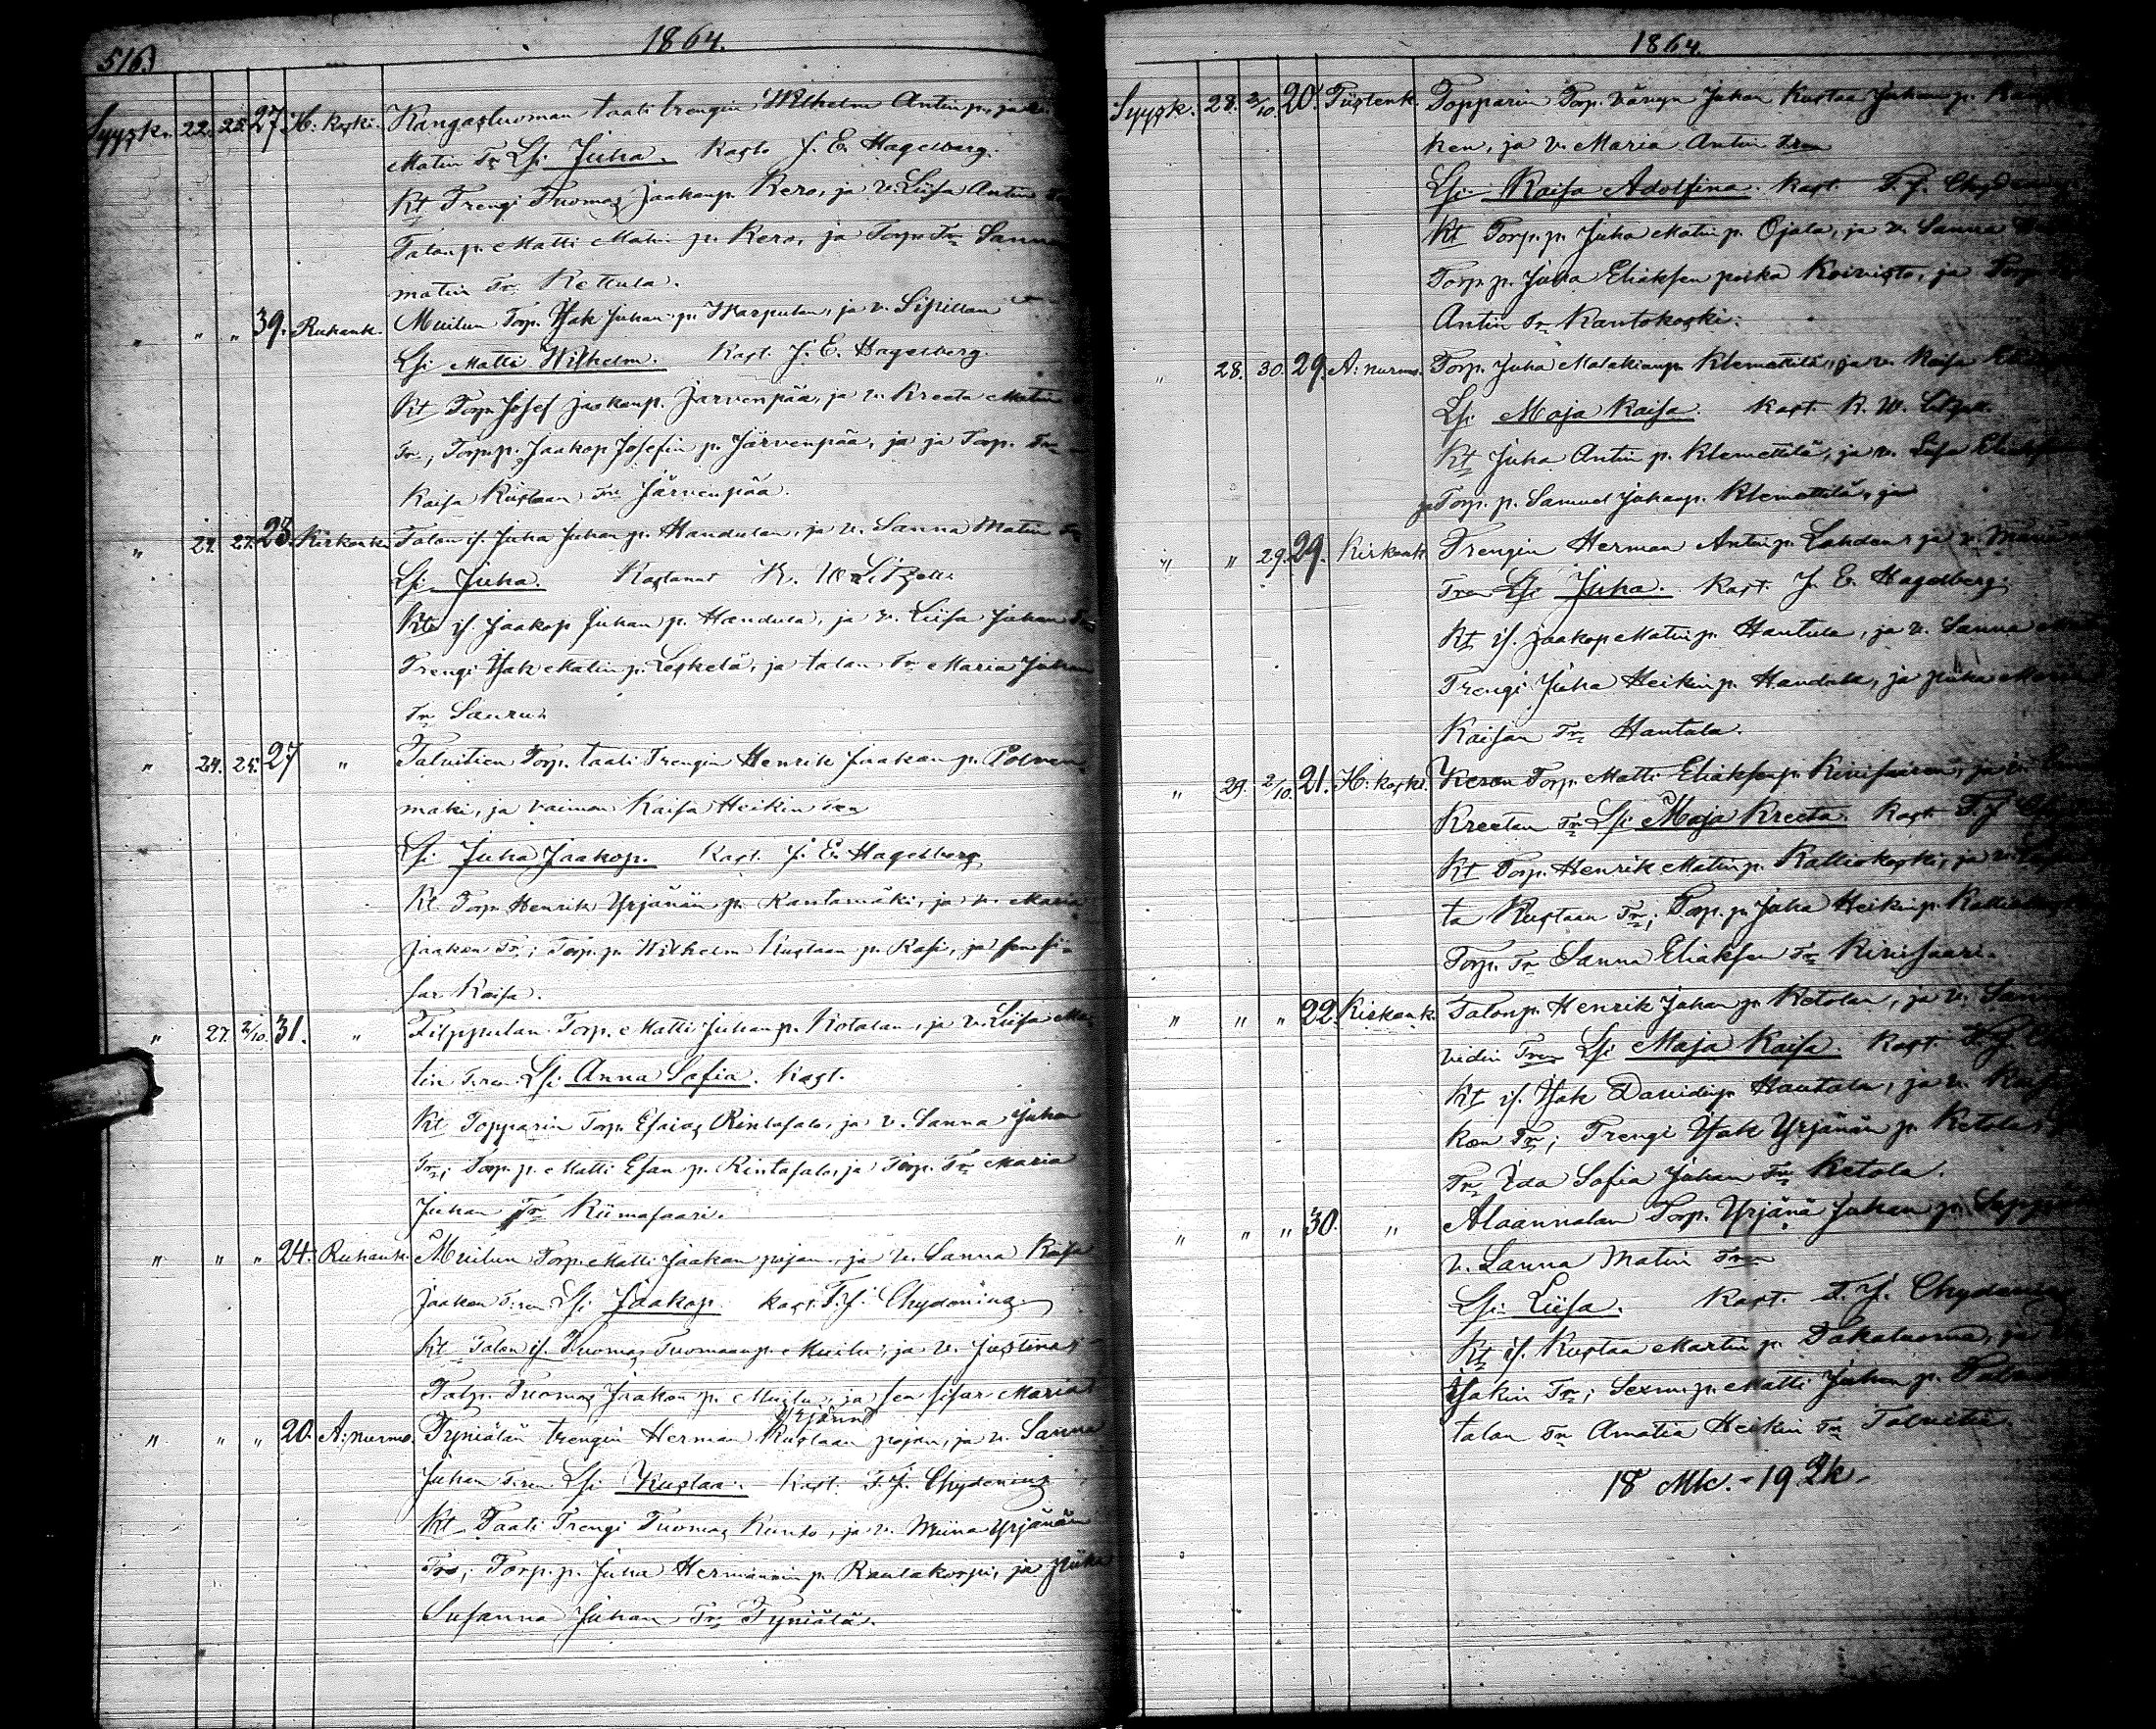 516)
1864.
Syysk. 22. 25. 27 H: koski. Kangasluoman taali trengin Wilhelm Antin p., ja
Matin Tr Lsi Juha. Kast. J. E. Hagelberg.
Kt Trengi Tuomas Jaakonp. Kero, ja v. Liisa Antin
Talonp. Matti Matin p. Kero, ja Torp. Tr Sanna
matin Tr Kettula.
" " " 39. Ruhank. Muilun Torp. Isak Juhan p. Warpulan, ja v. Sipillan
Lsi Matti Wilhelm. Kast. J. E. Hagelberg.
Kt Torp. Josef Jaakonp. Järvenpää, ja v. Kreeta Matin
Tr, Torp. p. Jaakop Josefin p. Järvenpää, ja ja Torp. Tr
Kaisa Kustaan Tr Järvenpää.
" 24. 27. 28. Kirkonk. Talon is. Juha Juhan p. Handulan, ja v. Sanna Matin Tr
Lsi Juha. Kastanut K. W. Litzell.
Kt is. Jaakop Juhan p. Handula, ja v. Liisa Juhan Tr
Trengi Isak Matin p. Leskelä, ja talon Tr Maria Juhan
Tr Sauru.
" 24. 25. 27 " Taluitien Torp. taali Trengin Henrik Jaakon p. Polven-
mäki, ja vaimon Kaisa Heikin
Lsi Juha Jaakop. Kast. J. E. Hagelberg
Kt. Torp. Henrik Yrjänän p. Rantamäki, ja v. Maria
Jaakon Tr; Torp. p. Wilhelm Kustaan p. Kasi, ja sen si-
sar Kaisa.
" 27. 2/10. 31. " Filppulan Torp. Matti Juhan p. Kotalan, ja v. Liisa Ma-
tin Tren Lsi Anna Sofia. Kast.
Kt Topparin Torp. Esaias Rintasalo, ja v. Sanna Juhan
Tr; Torp. p. Matti Esan p. Rintasalo, ja Torp. Tr Maria
Juhan Tr Kiimasaari.
" " " 24. Ruhank. Muilun Torp. Matti Jaakon pojan, ja v. Sanna Kaisa
Jaakon Tren Lsi Jaakop. Kast. T. J. Chydenius.
Kt Talon is. Tuomas Tuomaanp. Muilu, ja v. Justina;
Talp. Tuomas Jaakon p. Muilu, ja sen sisar Maria
" " " 20. A: nurmo. Tyniälän trengin Herman Kustaan pojan, ja v. Sanna
Yrjänä
Juhan Tren Lsi Kustaa. Kast. T. J. Chydenius
Kt Taali Trengi Tuomas Kunto, ja v. Miina Yrjänän
Tr; Torp. p. Juha Hermannin p. Rantakorpi, ja piika
Susanna Juhan Tr Tyniälä.
1864.
Syysk. 28. 2/10. 20. Tiistenk. Topparin Torp. Juhan Kustaa Juhan p.
ken, ja v. Maria Antin Tren
Lsi Kaisa Adolfina. Kast. T. J. Chydenius
Kt Torp. p. Juha Matin p. Ojala, ja v. Sanna
Torp. p. Juha Eliaksen poika Koivisto, ja Torp.
Antin Tr Kantokoski.
" 28. 30. 29. A: nurmo. Torp. Juha Malakianp. Klemettilä, ja v. Kaisa
Lsi Maja Kaisa. Kast. K. W. Litzell.
Kt Juha Antin p. Klemettilä, ja v. Liisa
ja Torp. p. Samuel Juhanp. Klemettilä, ja
" " 29. 29. Kirkonk Trengin Herman Antin p. Lahden, ja v.
Tren Lsi Juha. Kast. J. E. Hagelberg.
Kt is. Jaakop Matin p. Hantula, ja v. Sanna
Trengi Juha Heikin p. Handula, ja piika Maria
Kaisan Tr Hantala.
" 29. 2/10. 21. H: koski. Keron Torp. Matti Eliaksen p. Kivisaaren, ja v.
Kreetan Tr Lsi Maja Kreeta. Kast. T. J.
Kt Torp. Henrik Matin p. Kalliokoski, ja v.
ta Kustaan Tr; Torp. p. Juha Heikin p.
Torp. Tr Sanna Eliaksen Tr Kivisaari.
" " " 22. Kirkonk. Talonp. Henrik Juhan p. Ketolan, ja v.
vidin Tren Lsi Maja Kaisa. Kast. T. J.
Kt is. Isak Davidin p. Hautala, ja v.
kon Tr; Trengi Isak Yrjänän p. Ketola,
Tr Ida Sofia Juhan Tr Ketola.
" " " 30. " Alaannalan Torp. Yrjänä Juhan p.
v. Sanna Matin Tren
Lsi Liisa. Kast. T. J. Chydenius
Kt is. Kustaa Martin p. Pakaluoma, ja
Isakin Tr; Sexm. p. Matti Juhan p.
talon Tr Amalia Heikin Tr Taluitie.
18 Mk. - 19 Vk.